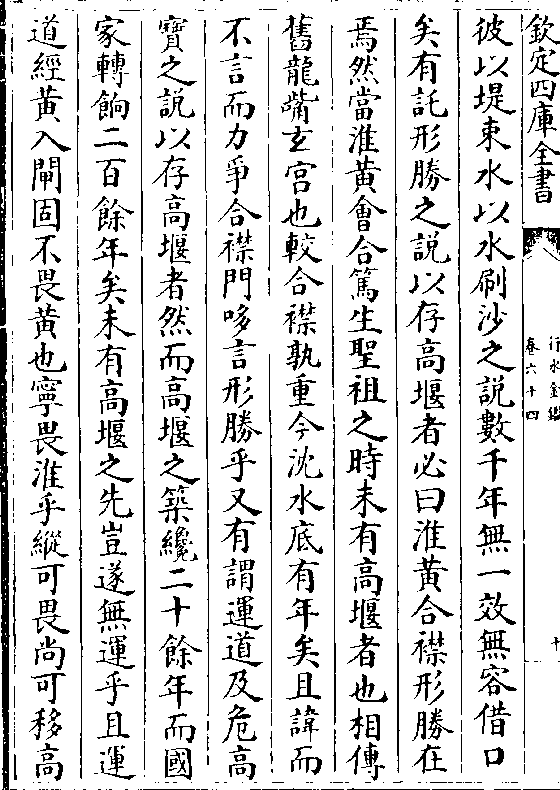 欽定四庫全書
行水金鑑
卷六十四
十
彼以堤束水以水刷沙之說數千年無一效無容借口
矣有託形勝之說以存高堰者必曰淮黃合襟形勝在
焉然當淮黃會合篤生聖祖之時未有高堰者也相傳
舊龍嘴玄宮也較合襟孰重今沈水底有年矣且諱而
不言而力爭合襟門哆言形勝乎又有謂運道及危高
寶之說以存高堰者然而高堰之築纔二十餘年而國
家轉餉二百餘年矣未有高堰之先豈遂無運乎且運
道經黃入閘固不畏黃也寧畏淮乎縱可畏尚可移高